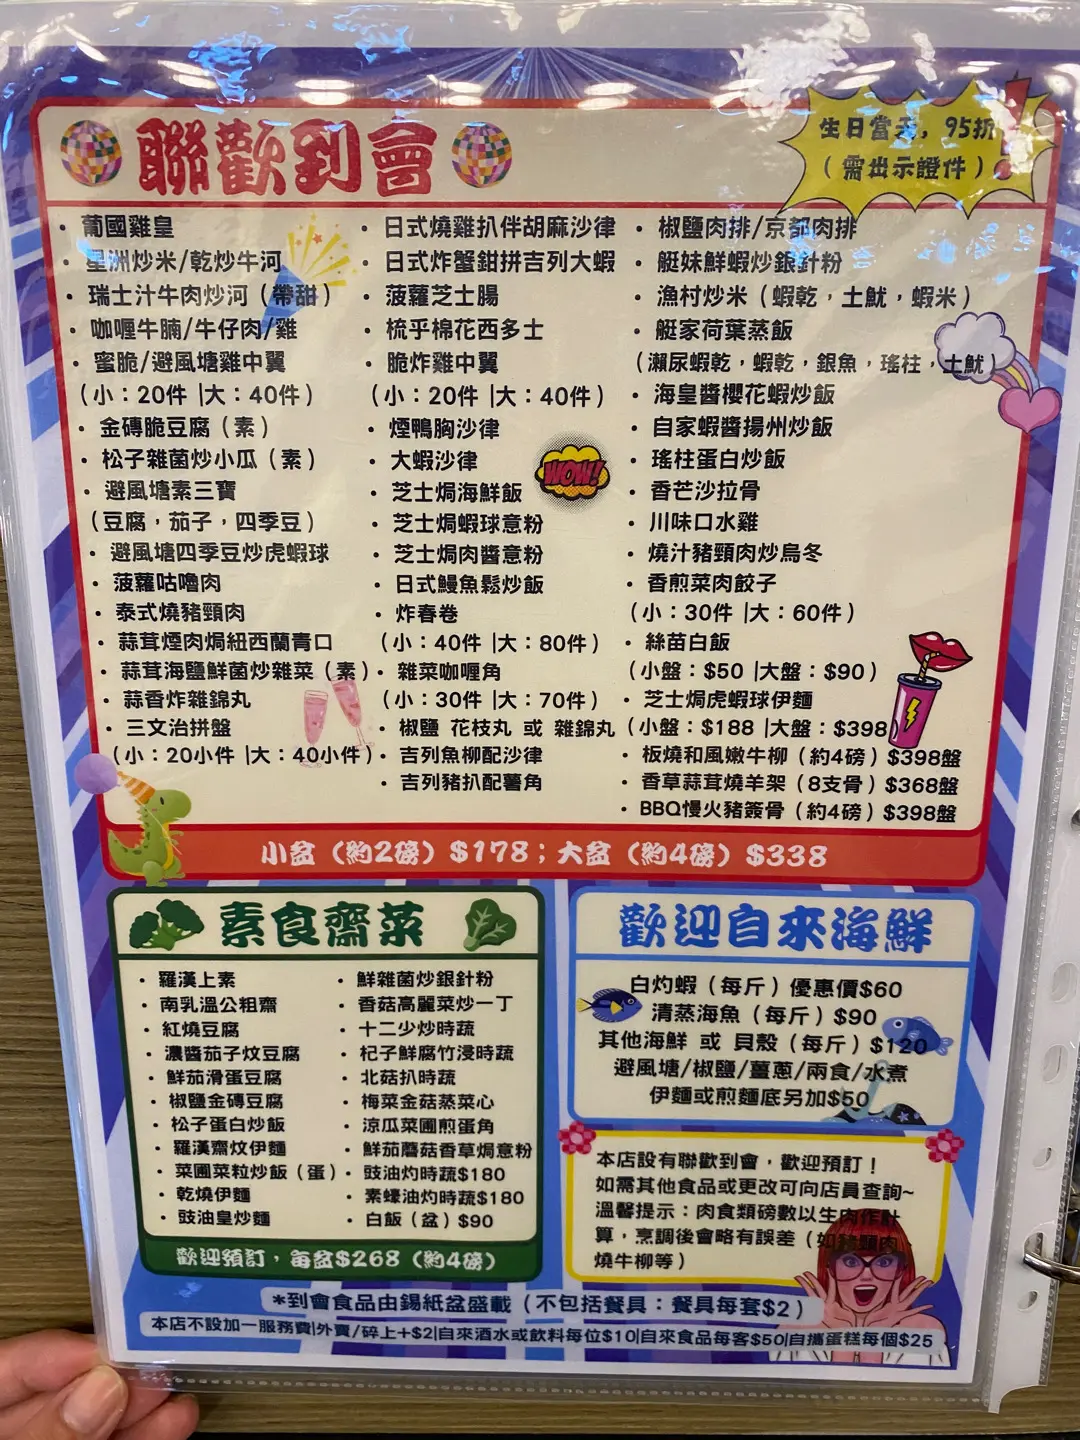 聯歡到會
生日當天，95折
（需出示證件）
• 葡國雞皇
• 星洲炒米/乾炒牛河
• 瑞士汁牛肉炒河（帶甜）
• 咖喱牛腩/牛仔肉/雞
• 蜜脆/避風塘雞中翼
（小：20件 |大：40件）
• 金磚脆豆腐（素）
• 松子雜菌炒小瓜（素）
• 避風塘素三寶
（豆腐，茄子，四季豆）
• 避風塘四季豆炒虎蝦球
• 菠蘿咕嚕肉
• 泰式燒豬頸肉
• 蒜茸煙肉焗紐西蘭青口
• 蒜茸海鹽鮮菌炒雜菜（素）
• 蒜香炸雜錦丸
• 三文治拼盤
（小：20小件 |大：40小件）
• 日式燒雞扒伴胡麻沙律
• 日式炸蟹鉗拼吉列大蝦
• 菠蘿芝士腸
• 梳乎棉花西多士
• 脆炸雞中翼
（小：20件 |大：40件）
• 煙鴨胸沙律
• 大蝦沙律
• 芝士焗海鮮飯
• 芝士焗蝦球意粉
• 芝士焗肉醬意粉
• 日式鰻魚鬆炒飯
• 炸春卷
（小：40件 |大：80件）
• 雜菜咖喱角
（小：30件 |大：70件）
• 椒鹽 花枝丸 或 雜錦丸
• 吉列魚柳配沙律
• 吉列豬扒配薯角
WOW!
• 椒鹽肉排/京都肉排
• 艇妹鮮蝦炒銀針粉
• 漁村炒米（蝦乾，土魷，蝦米）
• 艇家荷葉蒸飯
（瀨尿蝦乾，蝦乾，銀魚，瑤柱，土魷）
• 海皇醬櫻花蝦炒飯
• 自家蝦醬揚州炒飯
• 瑤柱蛋白炒飯
• 香芒沙拉骨
• 川味口水雞
• 燒汁豬頸肉炒烏冬
• 香煎菜肉餃子
（小：30件 |大：60件）
• 絲苗白飯
（小盤：$50 |大盤：$90）
• 芝士焗虎蝦球伊麵
（小盤：$188 |大盤：$398
• 板燒和風嫩牛柳（約4磅）$398盤
• 香草蒜茸燒羊架（8支骨）$368盤
• BBQ慢火豬簽骨（約4磅）$398盤
小盆（約2磅）$178；大盆（約4磅）$338
素食齋菜
• 羅漢上素
• 南乳溫公粗齋
• 紅燒豆腐
• 濃醬茄子炆豆腐
• 鮮茄滑蛋豆腐
• 椒鹽金磚豆腐
• 松子蛋白炒飯
• 羅漢齋炆伊麵
• 菜圃菜粒炒飯（蛋）
• 乾燒伊麵
• 豉油皇炒麵
• 鮮雜菌炒銀針粉
• 香菇高麗菜炒一丁
• 十二少炒時蔬
• 杞子鮮腐竹浸時蔬
• 北菇扒時蔬
• 梅菜金菇蒸菜心
• 涼瓜菜圃煎蛋角
• 鮮茄蘑菇香草焗意粉
• 豉油灼時蔬$180
• 素蠔油灼時蔬$180
• 白飯（盆）$90
歡迎預訂，每盆$268（約4磅）
歡迎自來海鮮
白灼蝦（每斤）優惠價$60
清蒸海魚（每斤）$90
其他海鮮 或 貝殼（每斤）$120
避風塘/椒鹽/薑蔥/兩食/水煮
伊麵或煎麵底另加$50
本店設有聯歡到會，歡迎預訂！
如需其他食品或更改可向店員查詢~
溫馨提示：肉食類磅數以生肉作計
算，烹調後會略有誤差（如豬頸肉、
燒牛柳等）
*到會食品由錫紙盆盛載（不包括餐具：餐具每套$2）
本店不設加一服務費|外賣/碎上+$2|自來酒水或飲料每位$10|自來食品每客$50|自攜蛋糕每個$25